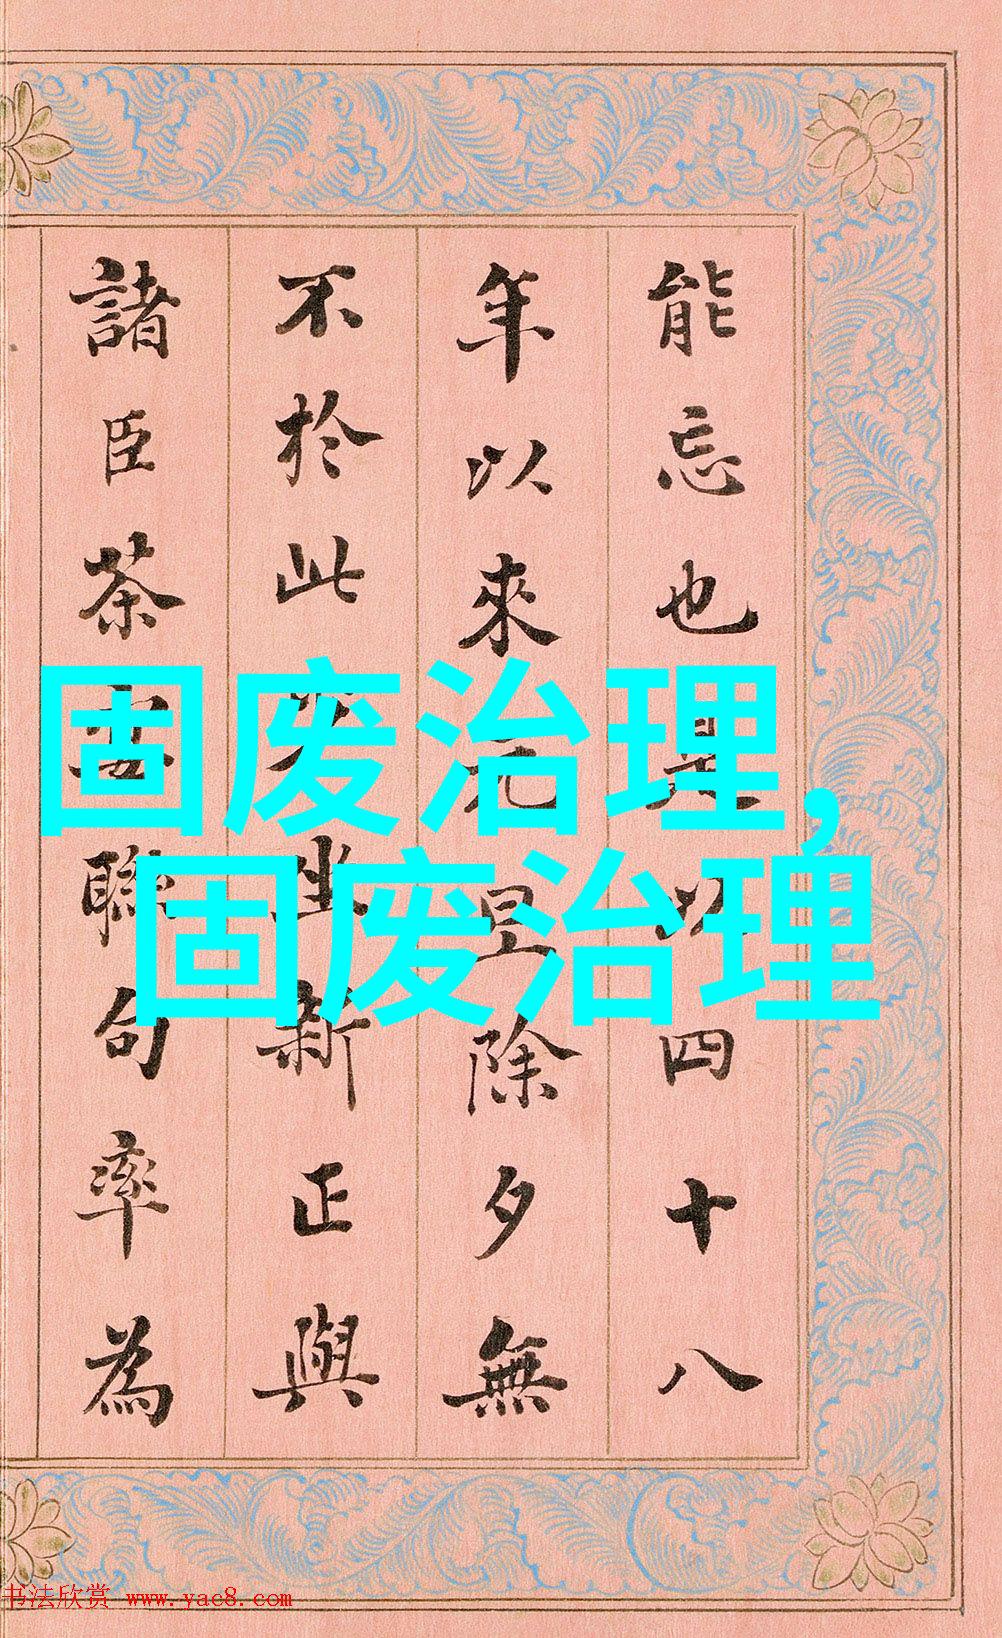 能忘也以四十八
年以來元旦除夕無
不於此坐新正與
諸臣茶宴聯句率為
固废治理,
固废治理
书法欣赏 www.yac8.com